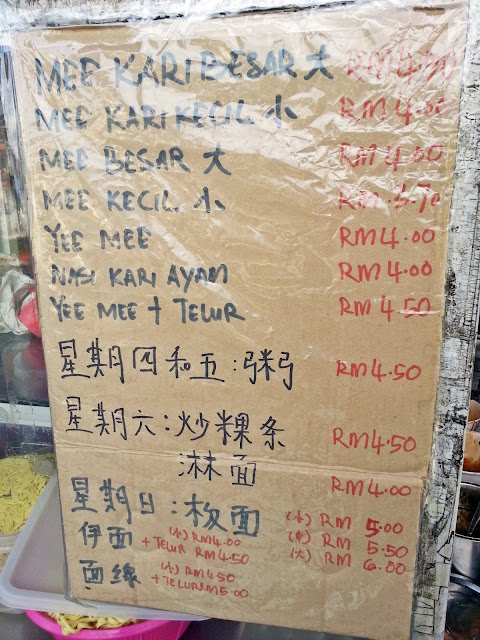 MEE KARI BESAR 大 RM4.50
MEE KARI KECIL 小 RM 4.00
MEE BESAR 大 RM4.00
MEE KECIL 小 RM 3.70
YEE MEE RM4.00
NASI KARI AYAM RM4.00
YEE MEE + TELUR RM4.50
星期四和五:粥 RM4.50
星期六:炒粿条 RM4.50
淋面 RM4.00
星期日:板面 (小) RM 5.00
(中) RM 5.50
(大) RM 6.00
伊面 (小) RM4.00
+ TELUR RM 4.50
面線 (小) RM4.50
+ TELUR RM5.00